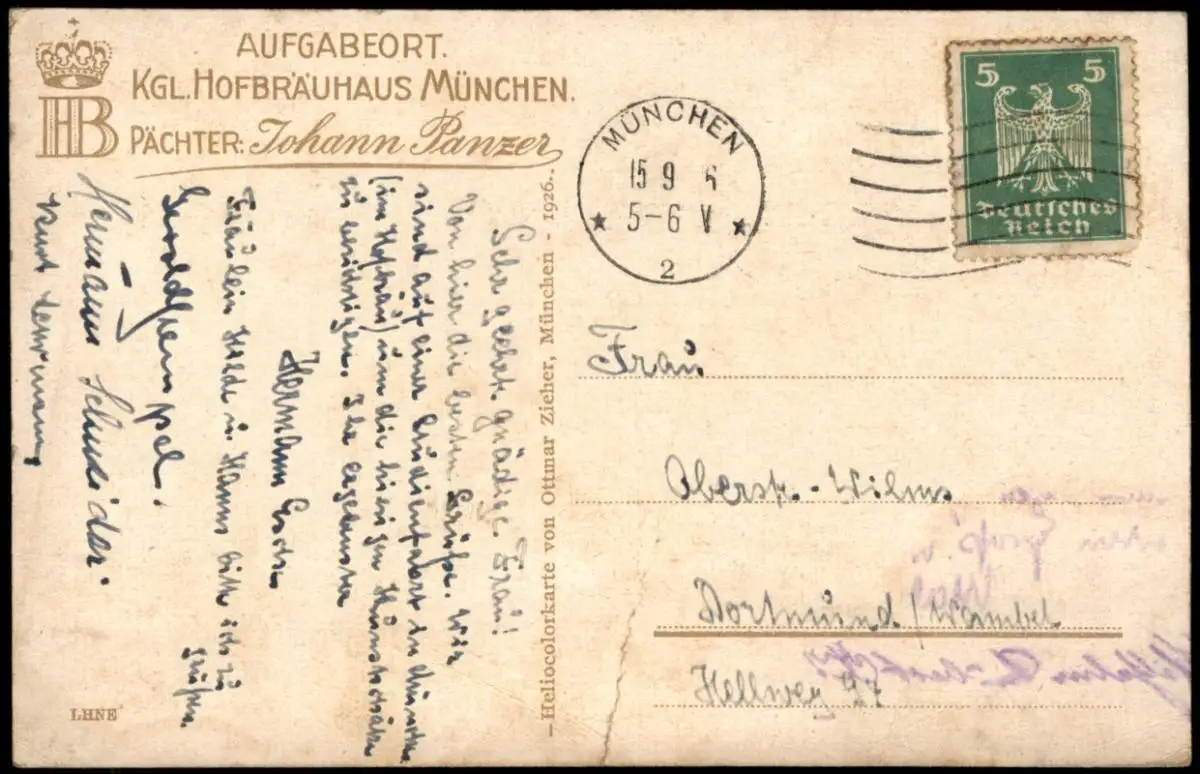 AUFGABEORT.
KGL. HOFBRÄUHAUS MÜNCHEN.
HB
PÄCHTER: Johann Panzer
Sehr geehrte gnädige Frau!
Von hier die besten Grüße. Wir
sind auf einer Studienfahrt in München
(im Hofbräu) um die hiesigen Kunstschätze
zu besichtigen. Ihr ergebenster
Hermann
Fräulein Hilde u. Hanns bitte ich zu
grüßen.
Hermann Schneider
Kurt Lehrmann
LHNE
- Heliocolorkarte von Ottmar Zieher, München - 1926..
MÜNCHEN
15 9 6
5-6 V
2
5 5
Deutsches
Reich
Frau
Oberst. - Wilms
Dortmund / Wambel
Hellweg 97